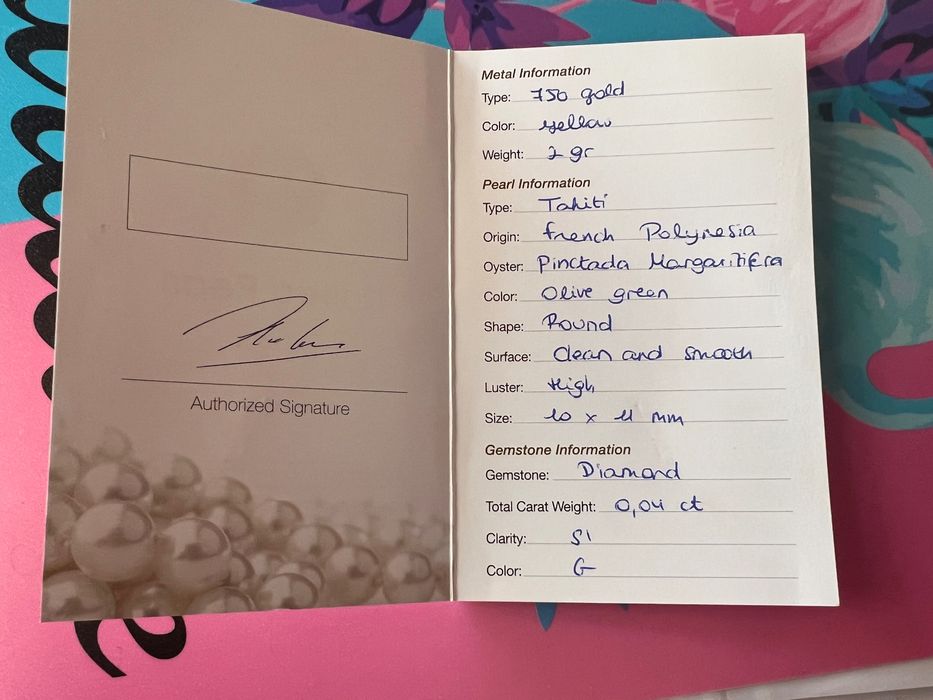 Authorized Signature
Metal Information
Type: 750 gold
Color: yellow
Weight: 2 gr
Pearl Information
Type: Tahiti
Origin: french Polynesia
Oyster: Pinctada Margaritifera
Color: Olive green
Shape: Round
Surface: Clean and smooth
Luster: High
Size: 10 x 11 mm
Gemstone Information
Gemstone: Diamond
Total Carat Weight: 0,04 ct
Clarity: SI
Color: G